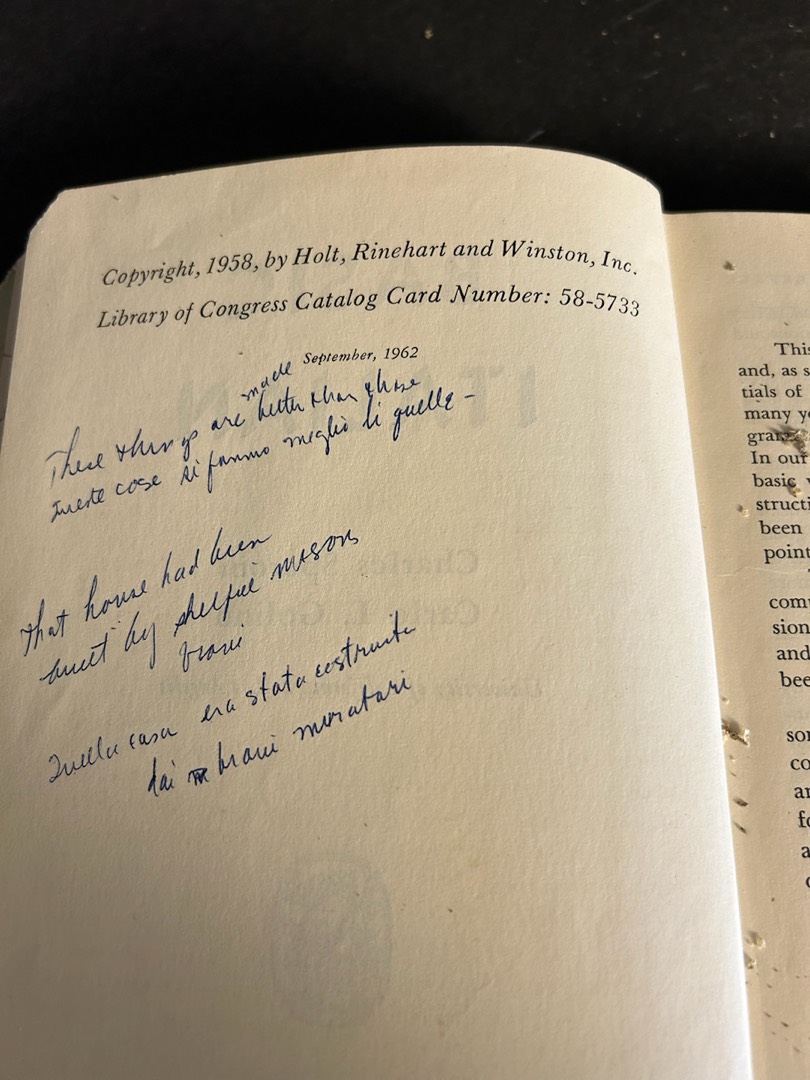 Copyright, 1958, by Holt, Rinehart and Winston, Inc.
Library of Congress Catalog Card Number: 58-5733
September, 1962
made
These things are better than those
Queste cose si fanno meglio di quelle -
That house had been
built by skelful masons
bravi
Quella casa era stata costruita
dai bravi muratori
This
and, as s
tials of
many ye
gra
In our
basic
structi
been
point
com
sion
and
bee
so
co
a
fo
a